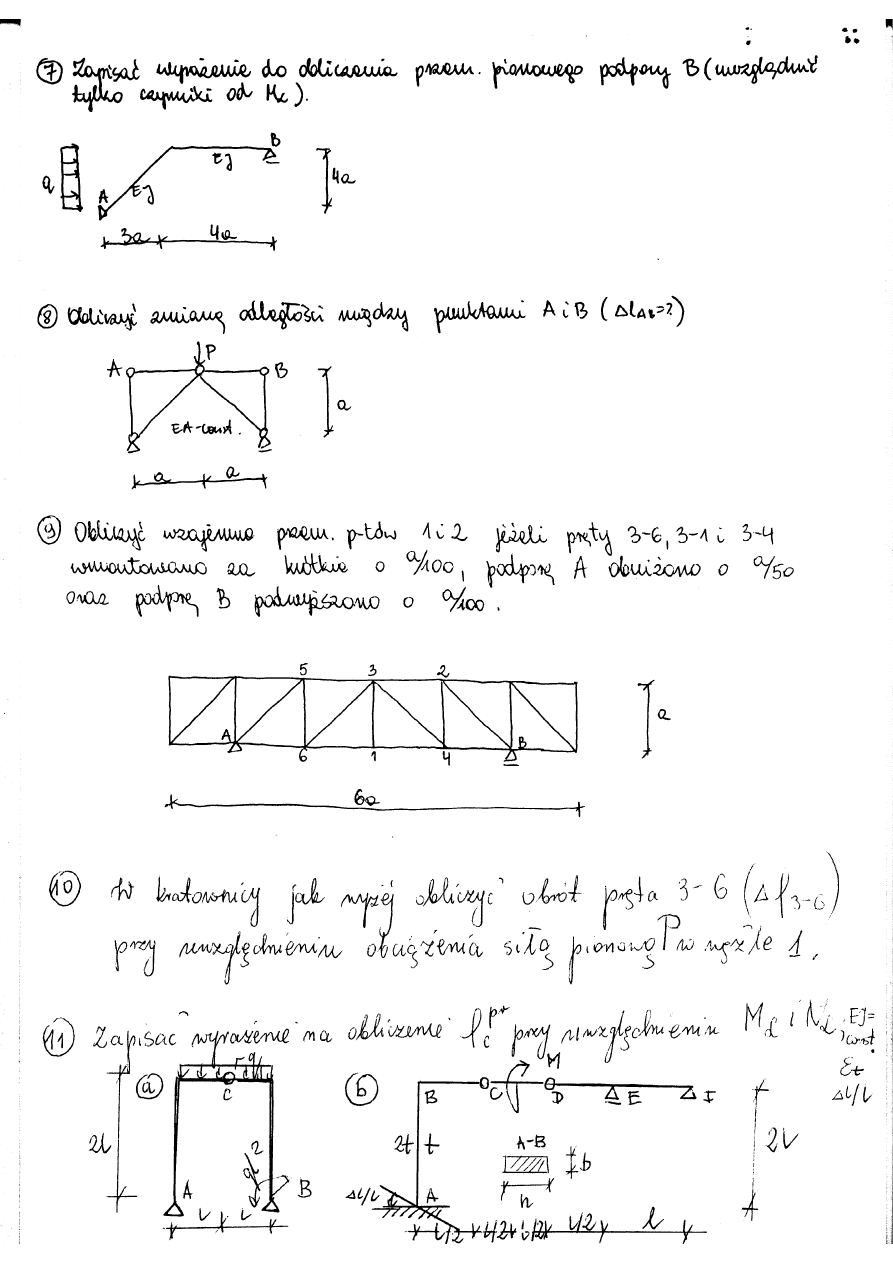 ⑦ Zapisać wyrażenie do obliczenia przem. pionowego podpory B (uwzględnić
tylko czynniki od Mα).
q
A
EJ
EJ
B
4a
3a
4a
⑧ Obliczyć zmianę odległości między punktami A i B (ΔlAB=?)
P
A
B
EA-const.
a
a
a
⑨ Obliczyć wzajemne przem. p-tów 1 i 2 jeżeli pręty 3-6, 3-1 i 3-4
wmontowano za krótkie o a/100, podporę A obniżono o a/50
oraz podporę B podwyższono o a/100.
5
3
2
A
6
1
4
B
a
6a
⑩ W kratownicy jak wyżej obliczyć obrót pręta 3-6 (Δφ3-6)
przy uwzględnieniu obciążenia siłą pionową P w węźle 1.
⑪ Zapisać wyrażenie na obliczenie przy uwzględnieniu Mα i Nα, EJ=
const.
Et
ΔL/L
ⓐ
q
C
2L
A
B
L
L
ⓑ
M
B
C
D
E
I
2t
t
A-B
b
h
ΔL/L
A
2L
L/2
L/2
L/2
L/2
l